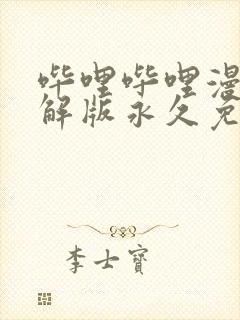 哔哩哔哩漫
解版永久免
李士宝